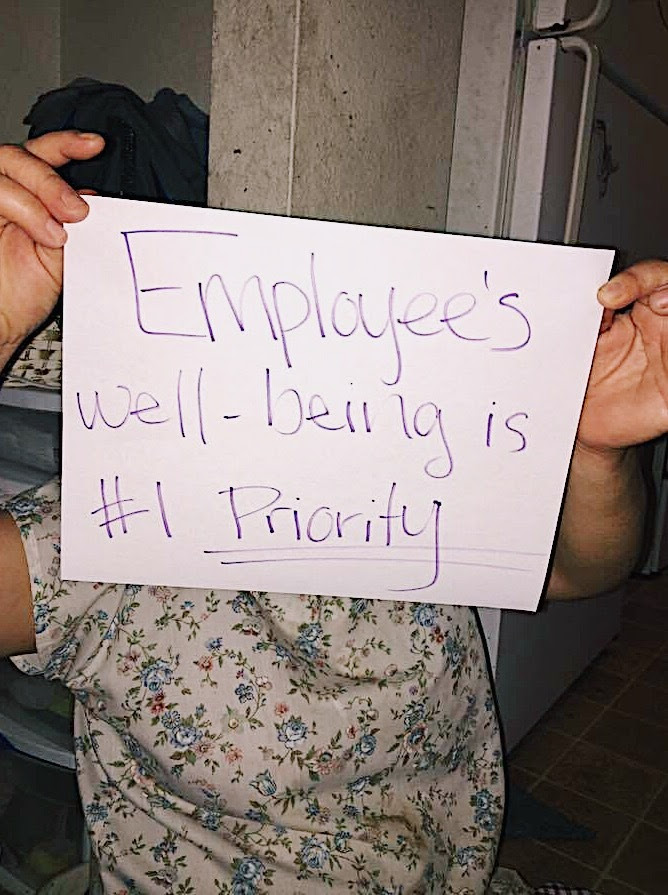 Employee's
well-being is
#1 Priority